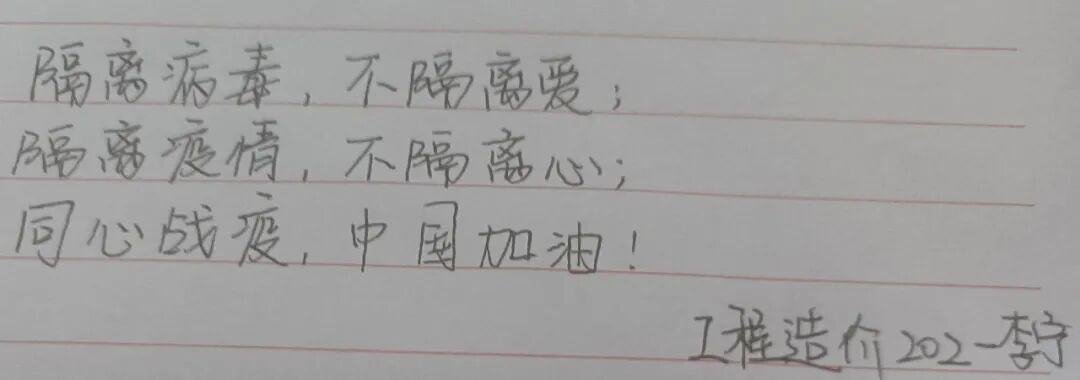 隔离病毒，不隔离爱；
隔离疫情，不隔离心；
同心战疫，中国加油！
工程造价202-李宁